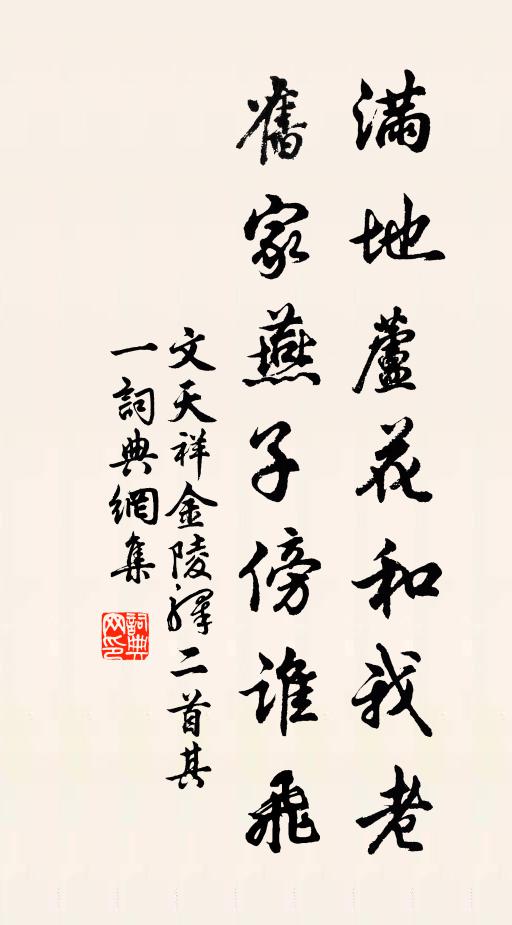 滿地蘆花和我老
舊家燕子傍誰飛
文天祥金陵驛二首其
一詞典網集
詞典
网印